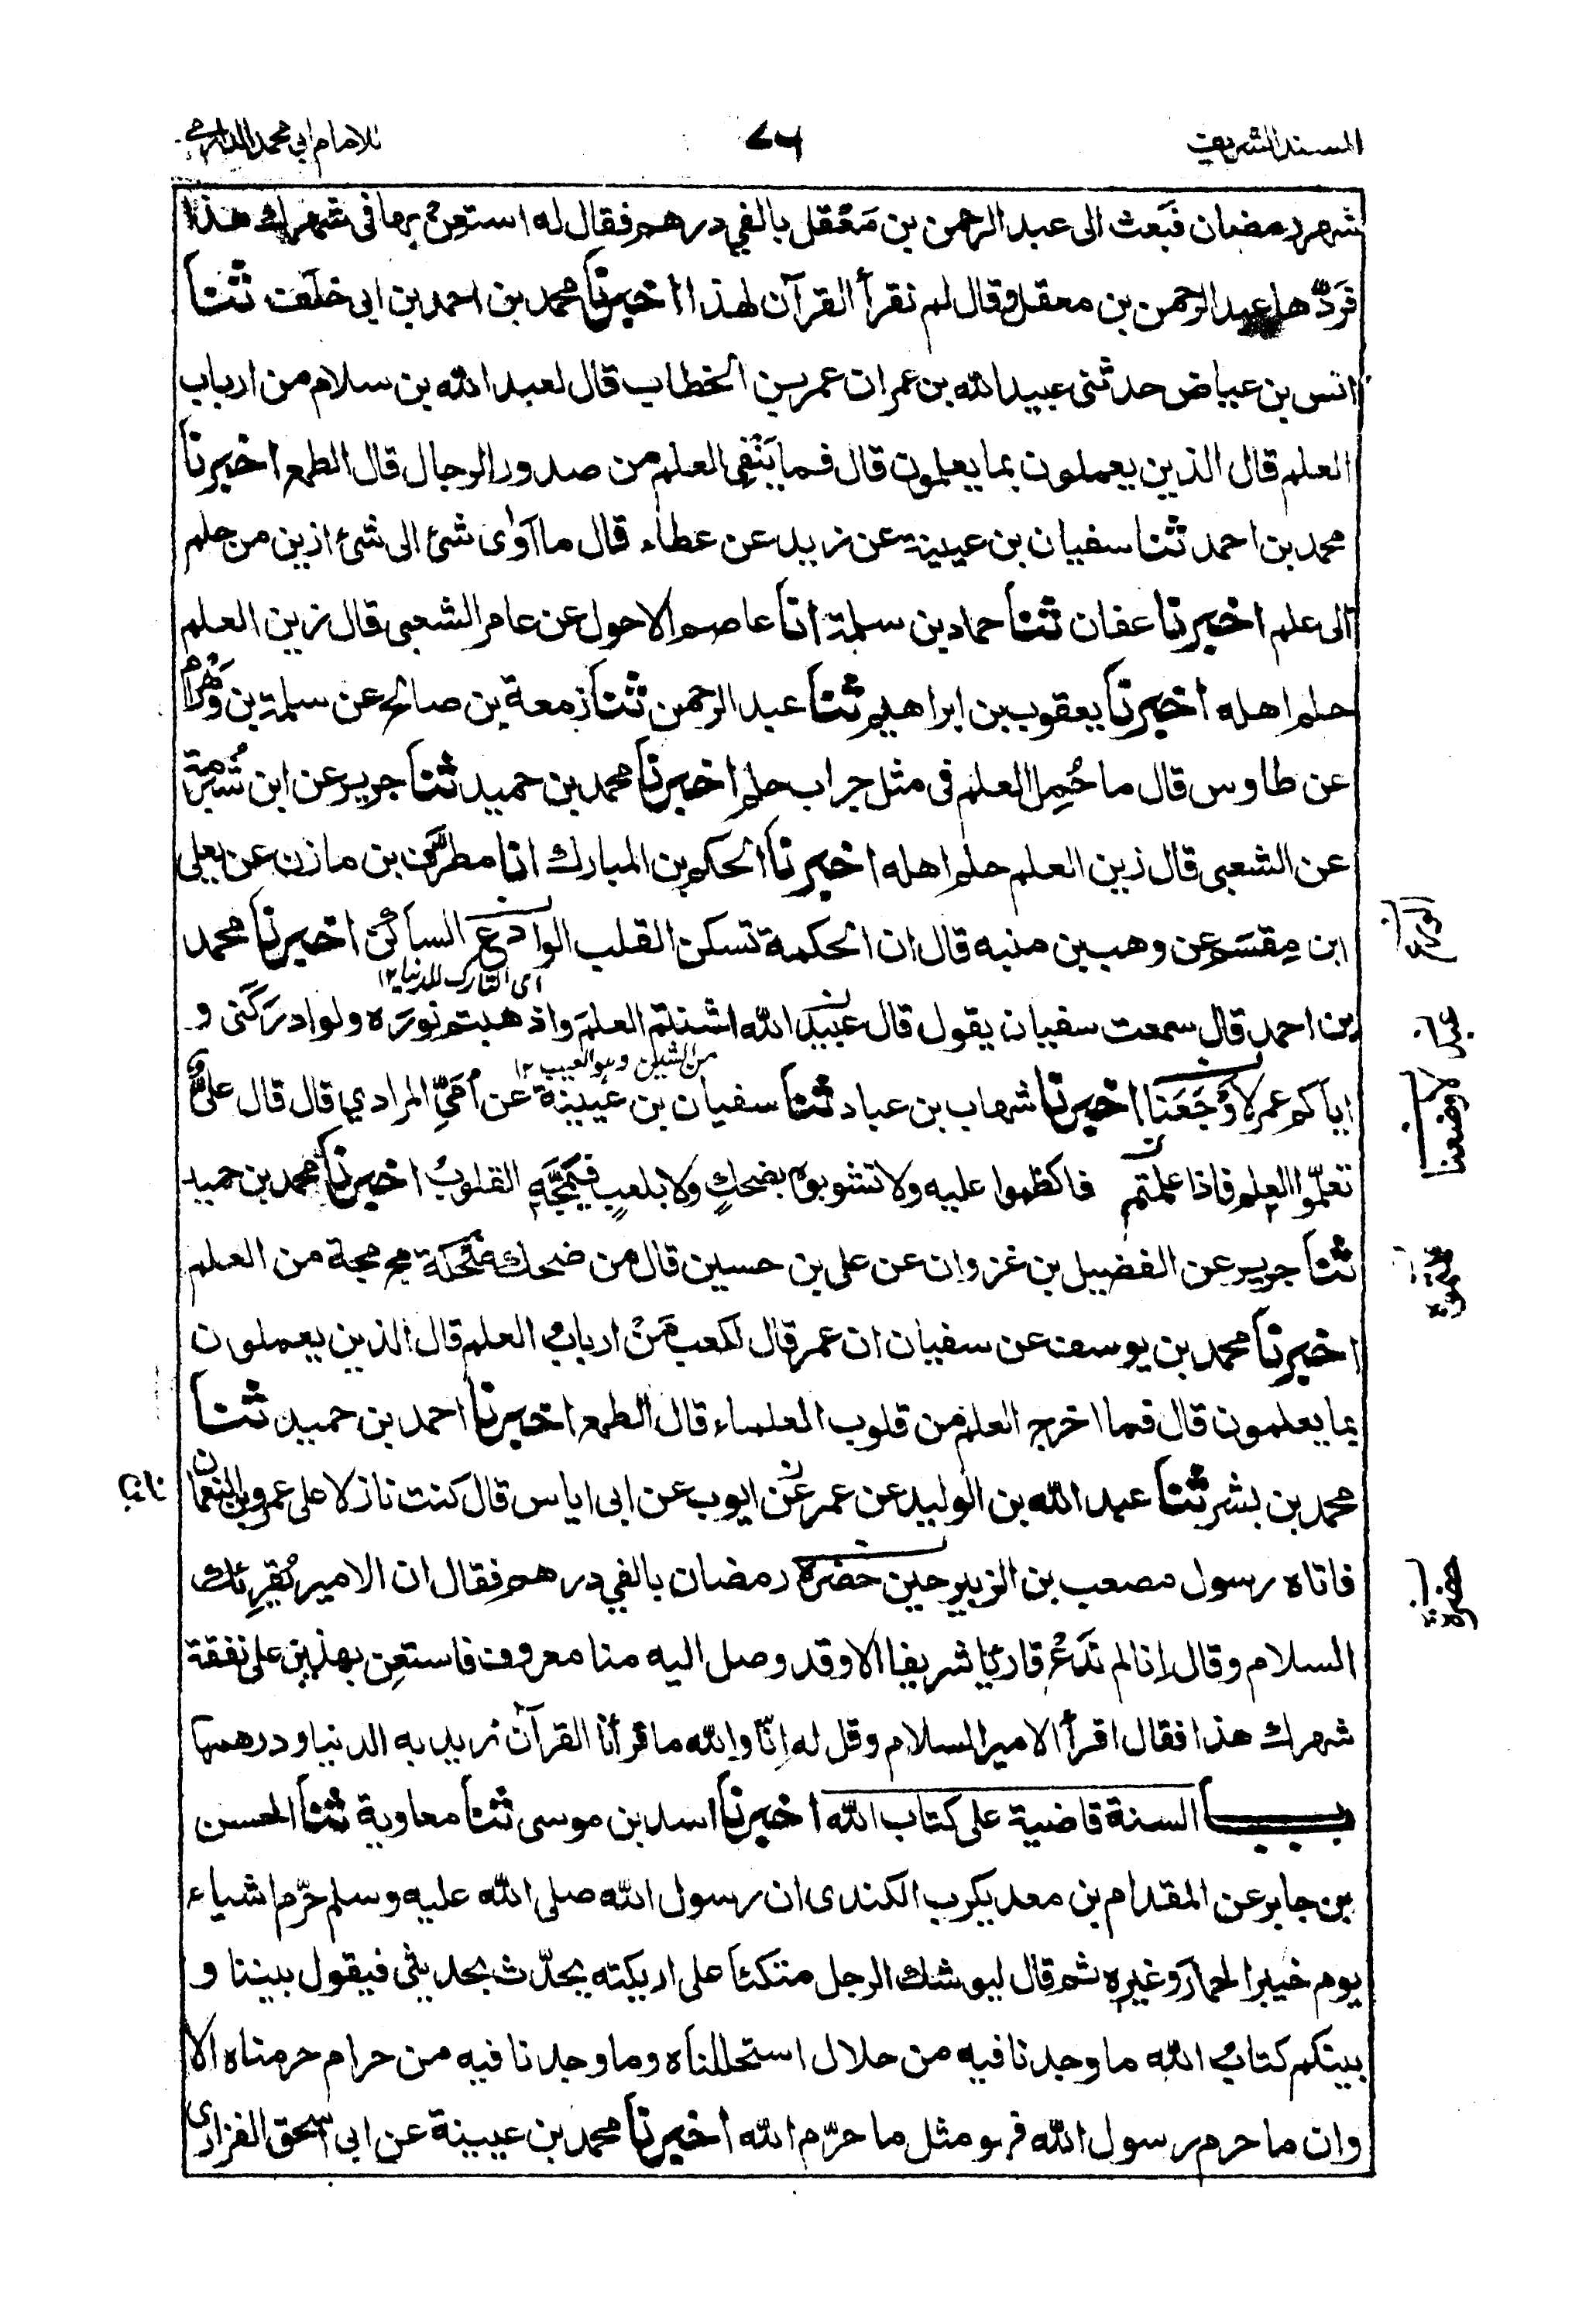 المسند الشريف ٧٦ للامام ابي محمد الدارمي
شهر رمضان فبَعث الى عبد الرحمن بن مَعْقل بالفي درهم فقال له استعِنْ بها فى شهرك هذا
فَرَدَّها عبد الرحمن بن معقل وقال لم نقرأ القرآن لهذا اخبرنا محمد بن احمد بن ابى خلف ثنا
انس بن عياض حدثنى عبيد الله بن عمر ان عمر بن الخطاب قال لعبد الله بن سلام من ارباب
العلم قال الذين يعملون بما يعلمون قال فما يَنْفِى العلم من صدور الرجال قال الطمع اخبرنا
محمد بن احمد ثنا سفيان بن عيينة عن زيد عن عطاء قال ما آوٰى شئ الى شئ ازين من حلم
الى علم اخبرنا عفان ثنا حماد بن سلمة انا عاصم الاحول عن عامر الشعبى قال زين العلم
حلم اهله اخبرنا يعقوب بن ابراهيم ثنا عبد الرحمن ثنا زمعة بن صالح عن سلمة بن وَهْرام
عن طاوس قال ما حُمِل العلم فى مثل جراب حلم اخبرنا محمد بن حميد ثنا جرير عن ابن شُبرمة
عن الشعبى قال زين العلم حلم اهله اخبرنا الحكم بن المبارك انا مطرّف بن مازن عن يعلى
ابن مِقسَم عن وهب بن منبه قال ان الحكمة تسكن القلب الوادع الساكن اخبرنا محمد
اى التارك للدنيا ١٢
بن احمد قال سمعت سفيان يقول قال عبيد الله اشنتم العلمَ واذهبتم نورَه ولو ادرَكَنى و
من الشين وهو العيب ١٢
اياكم عمر لاَوْجَعَنا اخبرنا شهاب بن عباد ثنا سفيان بن عُيينة عن اُمَيّ المرادي قال قال علىٌّ
تعلّموا العلم فاذا علمتم فاكظموا عليه ولا تشوبوه بضحكٍ ولا بلعبٍ فتمجَّه القلوبُ اخبرنا محمد بن حميد
ثنا جرير عن الفضيل بن غزوان عن على بن حسين قال من ضحك ضَحْكَة مج مجة من العلم
اخبرنا محمد بن يوسف عن سفيان ان عمر قال لكعب مَنْ اربابُ العلم قال الذين يعملون
بما يعلمون قال فما اخرج العلم من قلوب العلماء قال الطمع اخبرنا احمد بن حميد ثنا
محمد بن بشر ثنا عبد الله بن الوليد عن عمر عن ايوب عن ابى اياس قال كنت نازلا على عمرو بن النعمان
فاتاه رسول مصعب بن الزبير حين حضره رمضان بالفي درهم فقال ان الامير يُقرِئك
السلام وقال اِنا لم نَدَعْ قارئا شريفا الا وقد وصل اليه منا معروف فاستعِن بهذين على نفقة
شهرك هذا فقال اقرأ الامير السلام وقل له اِنّا والله ما قرأنا القرآن نريد به الدنيا ودرهمها
باب السنة قاضية على كتاب الله اخبرنا اسد بن موسى ثنا معاوية ثنا الحسن
بن جابر عن المقدام بن معديكرب الكندى ان رسول الله صلى الله عليه وسلم حرّم اشياء
يوم خيبر الحمارَ وغيره ثم قال ليوشك الرجل متكئا على اريكته يحدّث بحديثى فيقول بيننا و
بينكم كتابُ الله ما وجدنا فيه من حلال استحللناه وما وجدنا فيه من حرام حرمناه الا
وان ما حرم رسول الله فهو مثل ما حرّم الله اخبرنا محمد بن عيينة عن ابى اسحق الفزارى